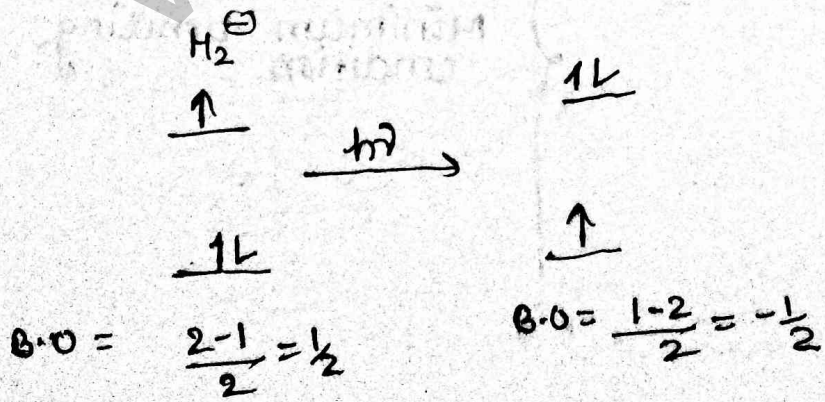 H₂⊖
↑
1L
hν
1L
↑
B.O = 2-1/2 = 1/2
B.O = 1-2/2 = -1/2